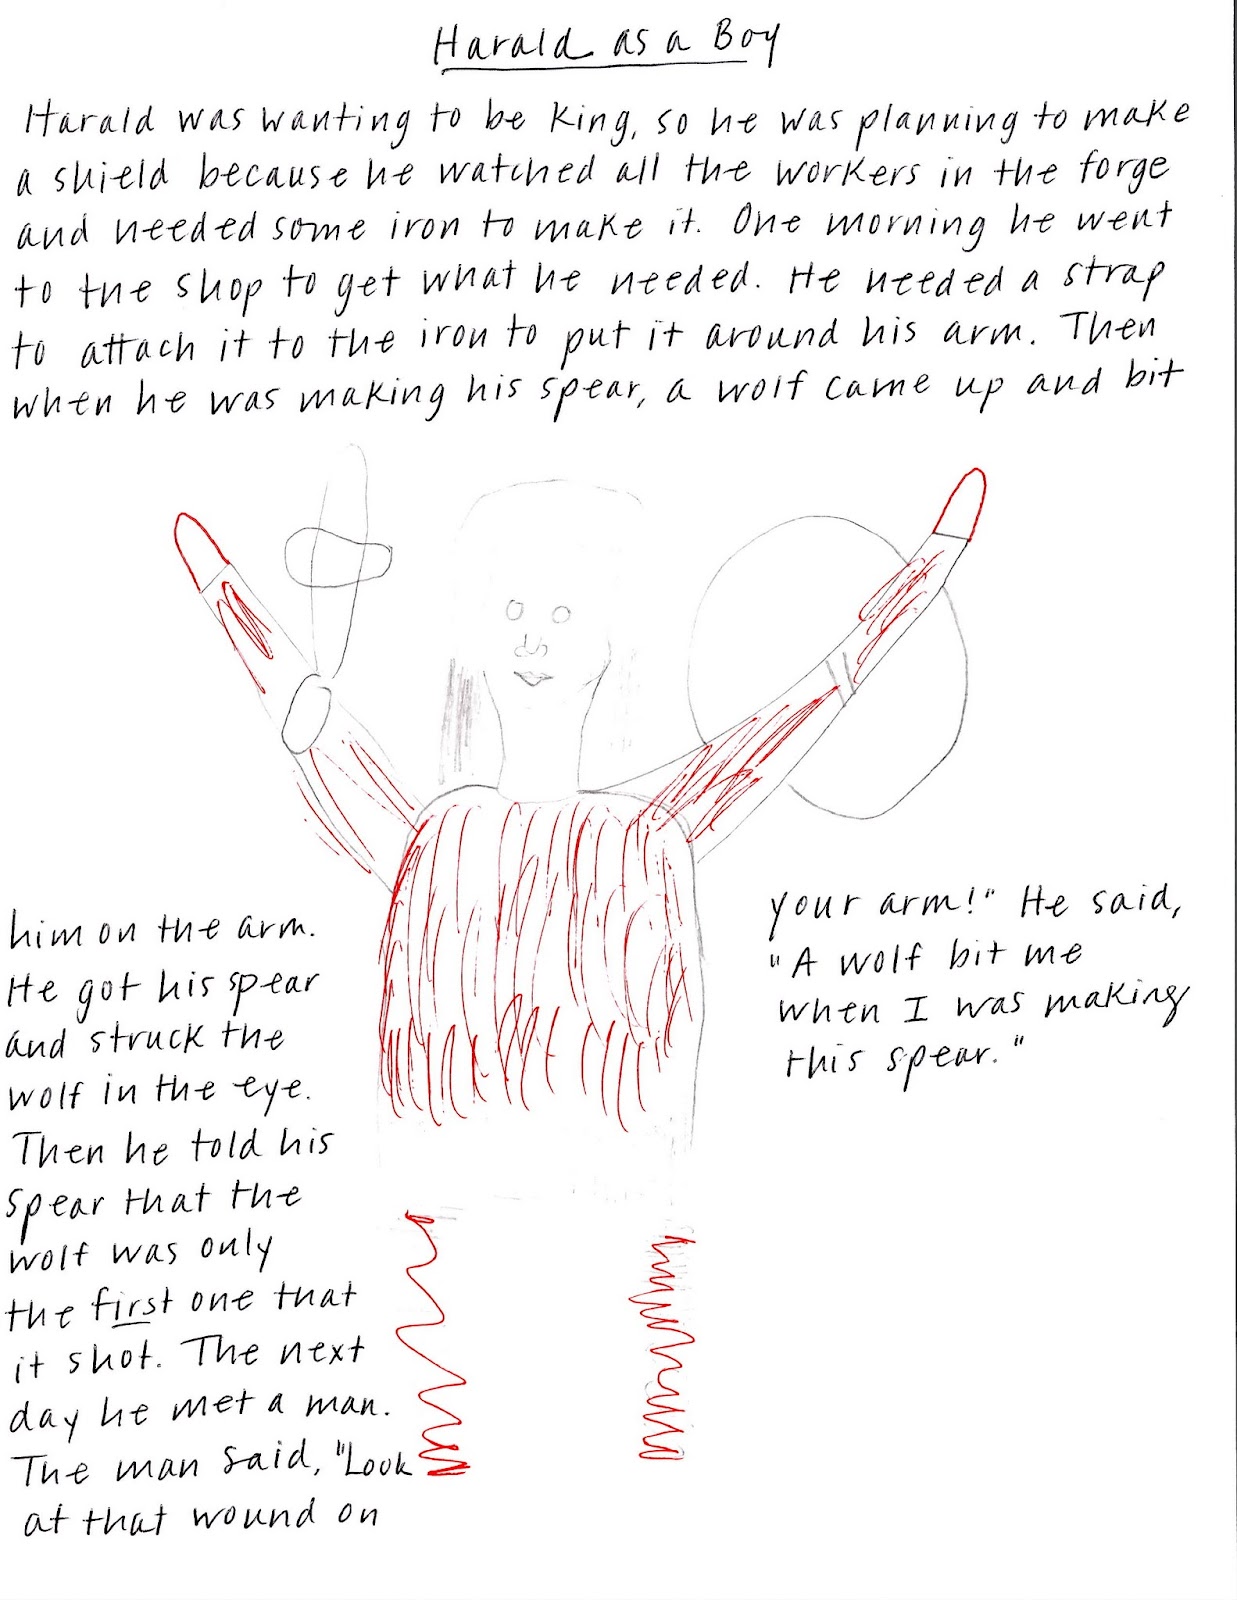 Harald as a Boy
Harald was wanting to be King, so he was planning to make
a shield because he watched all the workers in the forge
and needed some iron to make it. One morning he went
to the shop to get what he needed. He needed a strap
to attach it to the iron to put it around his arm. Then
when he was making his spear, a wolf came up and bit
him on the arm.
He got his spear
and struck the
wolf in the eye.
Then he told his
spear that the
wolf was only
the first one that
it shot. The next
day he met a man.
The man said, "Look
at that wound on
your arm!" He said,
"A wolf bit me
when I was making
this spear."